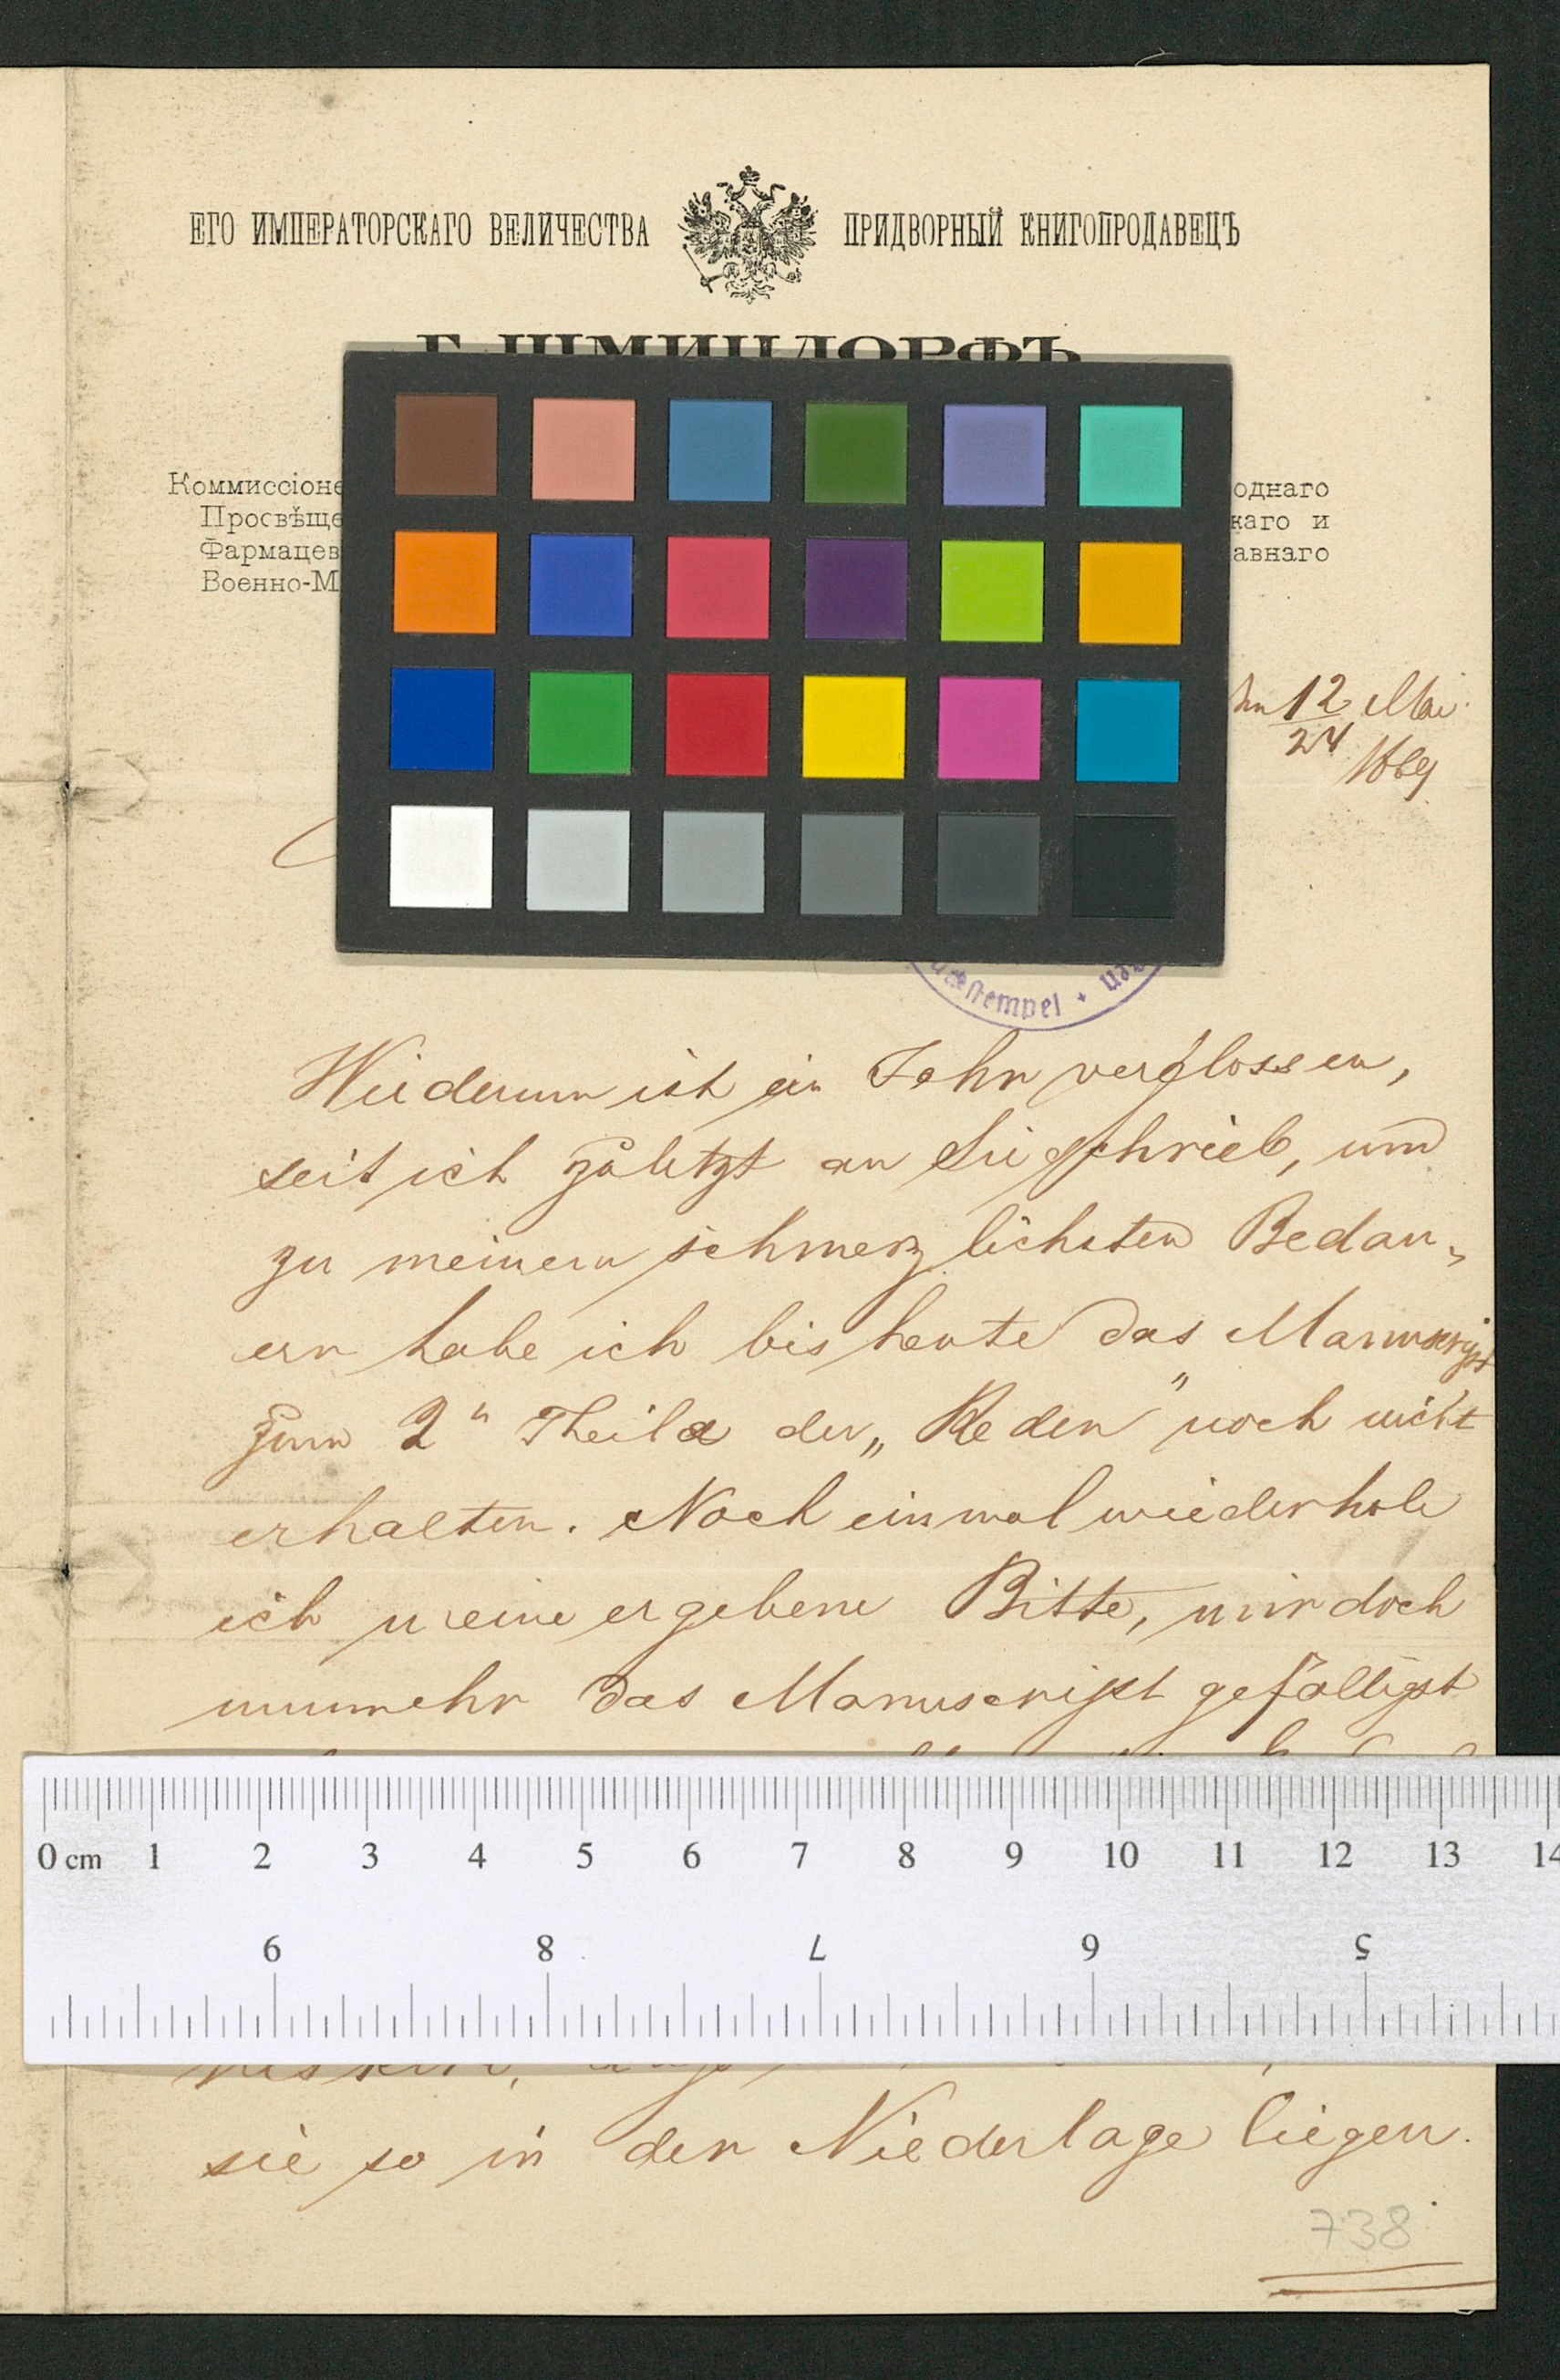 ЕГО ИМПЕРАТОРСКАГО ВЕЛИЧЕСТВА ПРИДВОРНЫЙ КНИГОПРОДАВЕЦЪ
Г. ШМИЦДОРФЪ
Коммиссіоне однаго
Просвѣще каго и
Фармацев авнаго
Военно-М
12 Mai
24
1889
stempel
Wiederum ist ein Jahr verflossen,
seit ich zuletzt an Sie schrieb, und
zu meinem schmerzlichsten Bedau-
ern habe ich bis heute das Manuscript
zum 2n Theile der „Reden" noch nicht
erhalten. Noch einmal wiederhole
ich meine ergebene Bitte, mir doch
nunmehr das Manuscript gefälligst
0 cm 1 2 3 4 5 6 7 8 9 10 11 12 13 14
9 8 7 6 5
sie so in der Niederlage liegen.
738